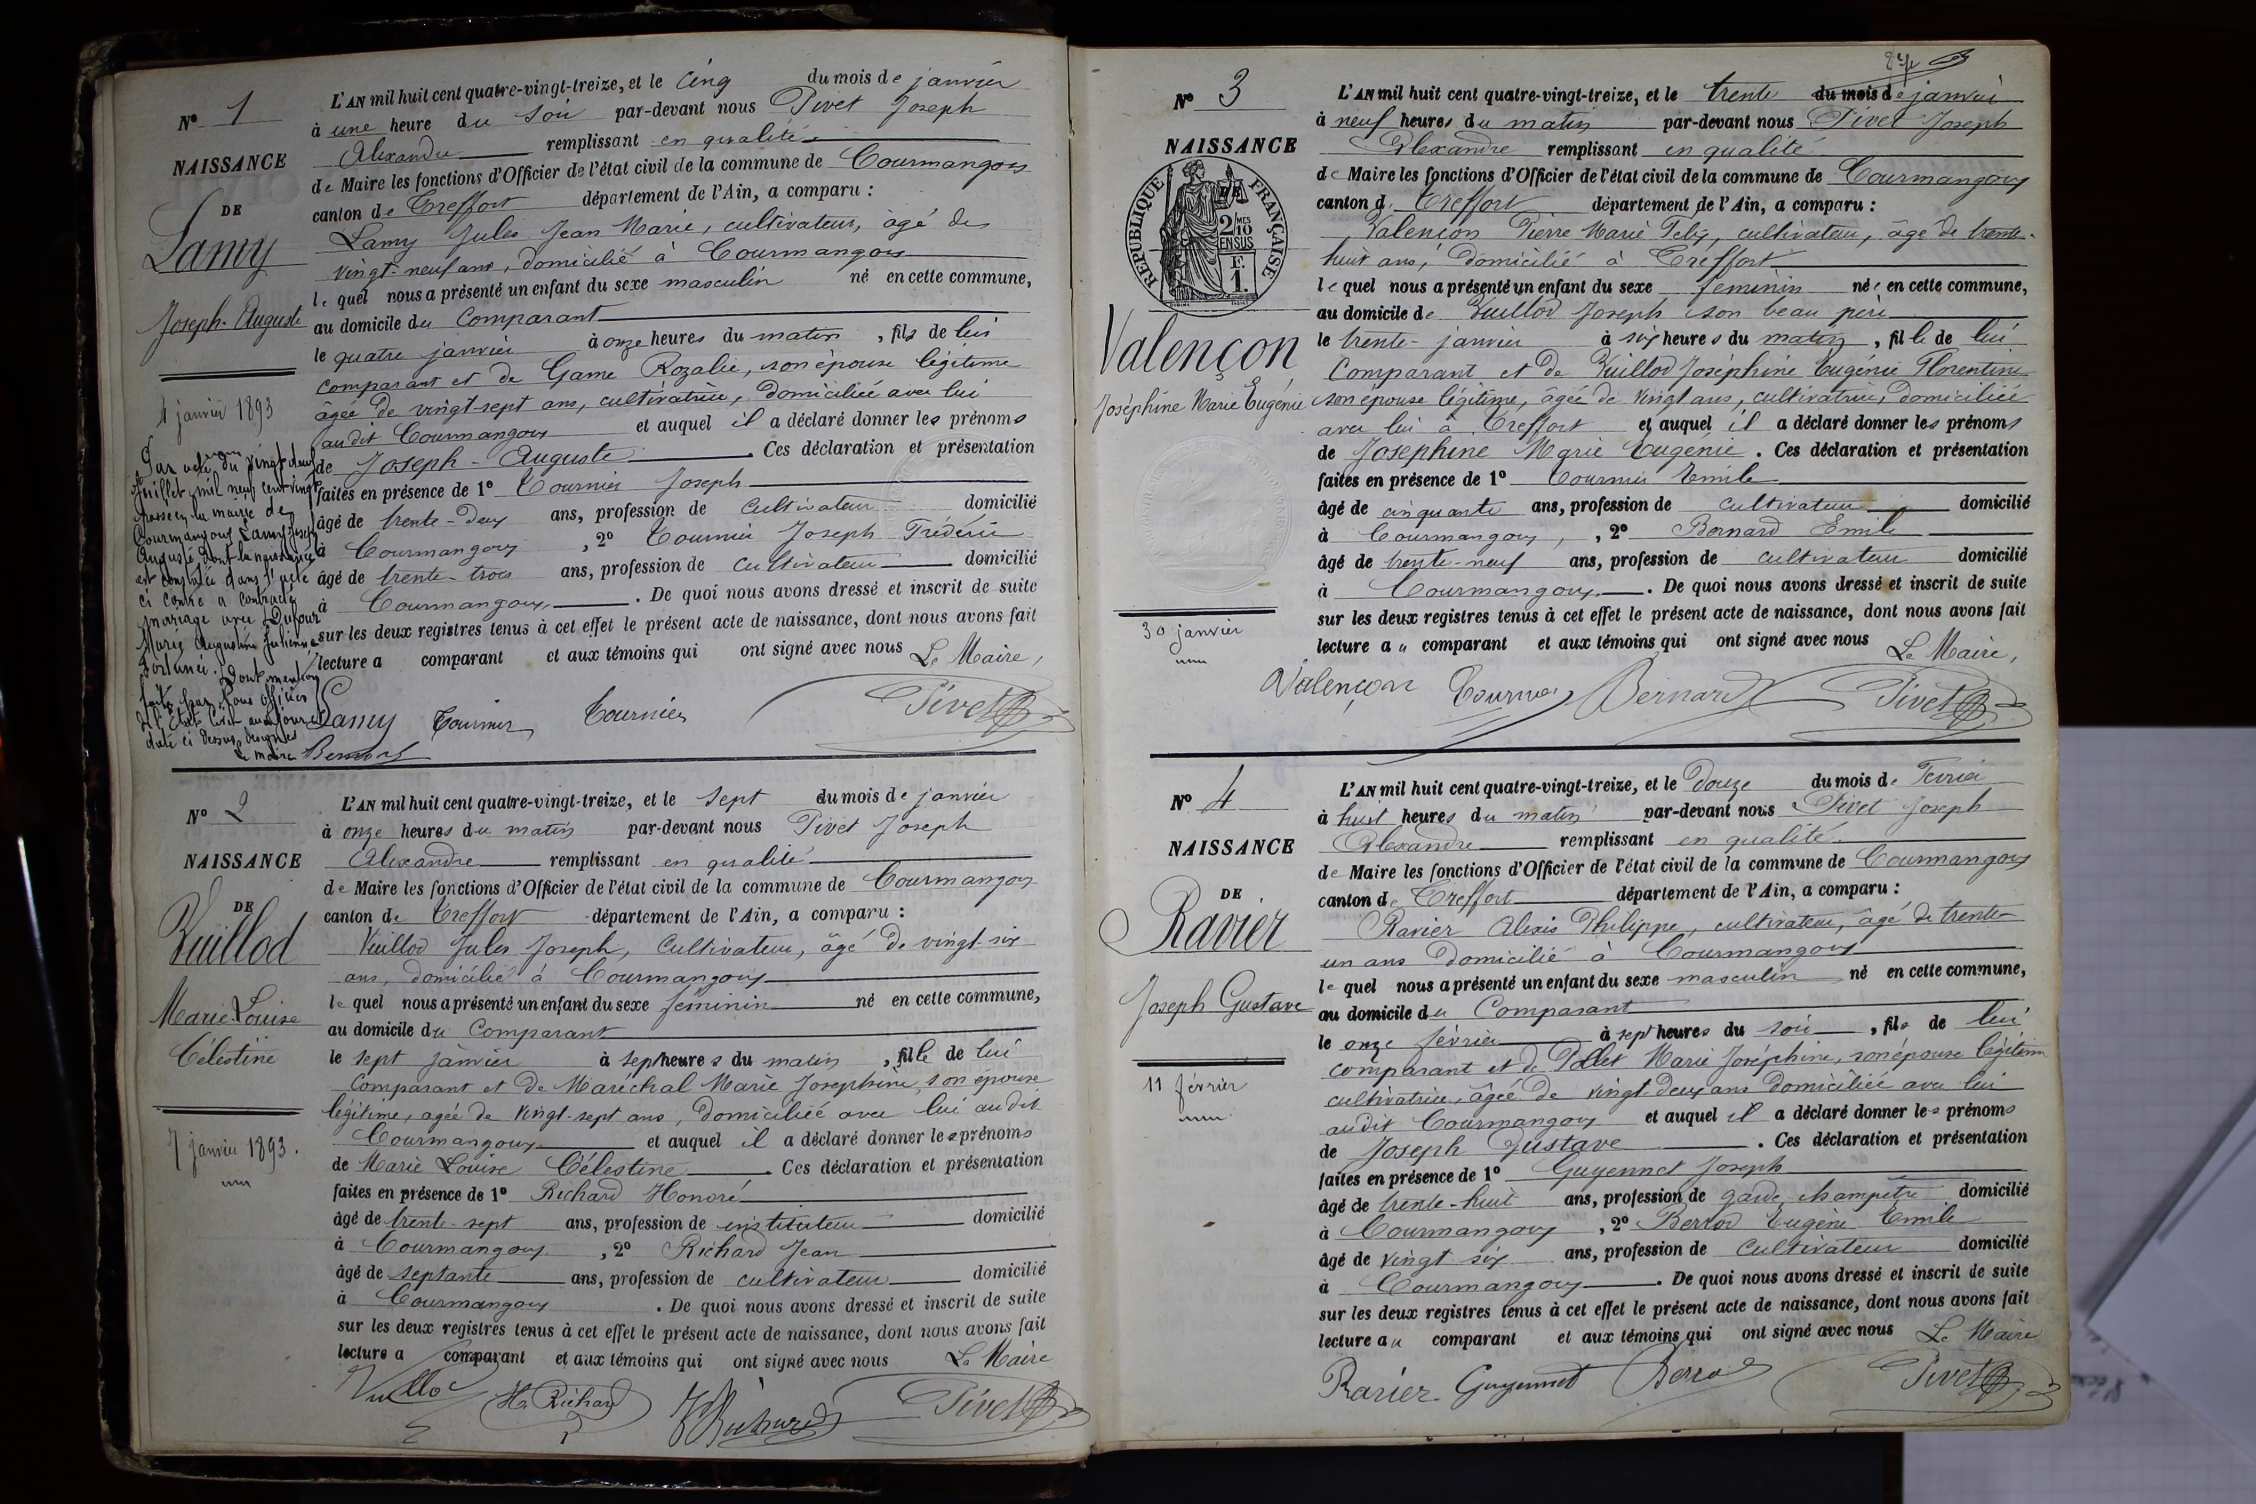 N° 1
NAISSANCE
DE
Lamy
Joseph-Auguste
4 janvier 1893
Par acte du vingt-deux
Juillet mil neuf cent vingt
passé en la mairie de
Courmangoux Lamy Joseph
Auguste dont la naissance
est constatée dans l'acte
ci contre a contracté
mariage avec Dufour
Marie Augustine Julienne
Fortunée. Dont mention
faite par Nous officier
de l'Etat Civil aux jour et
date ci dessus désignés
Le maire
L'AN mil huit cent quatre-vingt-treize, et le cinq du mois de janvier
à une heure du soir par-devant nous Pivet Joseph
Alexandre remplissant en qualité
de Maire les fonctions d'Officier de l'état civil de la commune de Courmangoux
canton de Treffort département de l'Ain, a comparu :
Lamy Jules Jean Marie, cultivateur, âgé de
vingt-neuf ans, domicilié à Courmangoux
lequel nous a présenté un enfant du sexe masculin né en cette commune,
au domicile du Comparant
le quatre janvier à onze heures du matin, fils de lui
comparant et de Game Rozalie, son épouse légitime
âgée de vingt-sept ans, cultivatrice, domiciliée avec lui
audit Courmangoux et auquel il a déclaré donner les prénoms
de Joseph-Auguste. Ces déclaration et présentation
faites en présence de 1° Tournier Joseph
âgé de trente-deux ans, profession de cultivateur domicilié
à Courmangoux, 2° Tournier Joseph Frédéric
âgé de trente-trois ans, profession de cultivateur domicilié
à Courmangoux. De quoi nous avons dressé et inscrit de suite
sur les deux registres tenus à cet effet le présent acte de naissance, dont nous avons fait
lecture a comparant et aux témoins qui ont signé avec nous Le Maire,
Lamy Tournier Tournier Pivet
N° 2
NAISSANCE
DE
Vuillod
Marie Louise
Célestine
7 janvier 1893.
L'AN mil huit cent quatre-vingt-treize, et le sept du mois de janvier
à onze heures du matin par-devant nous Pivet Joseph
Alexandre remplissant en qualité
de Maire les fonctions d'Officier de l'état civil de la commune de Courmangoux
canton de Treffort département de l'Ain, a comparu :
Vuillod Jules Joseph, Cultivateur, âgé de vingt-six
ans, domicilié à Courmangoux
lequel nous a présenté un enfant du sexe féminin né en cette commune,
au domicile du Comparant
le sept janvier à sept heures du matin, fille de lui
Comparant et de Maréchal Marie Josephine, son épouse
légitime, agée de vingt-sept ans, domiciliée avec lui audit
Courmangoux et auquel il a déclaré donner les prénoms
de Marie Louise Célestine. Ces déclaration et présentation
faites en présence de 1° Richard Honoré
âgé de trente-sept ans, profession de instituteur domicilié
à Courmangoux, 2° Richard Jean
âgé de septante ans, profession de cultivateur domicilié
à Courmangoux. De quoi nous avons dressé et inscrit de suite
sur les deux registres tenus à cet effet le présent acte de naissance, dont nous avons fait
lecture a comparant et aux témoins qui ont signé avec nous Le Maire
Vuillod H. Richard J Richard Pivet
N° 3
NAISSANCE
REPUBLIQUE FRANÇAISE
2/10 MES
EN SUS
F.
1.
Valençon
Joséphine Marie Eugénie
30 janvier
L'AN mil huit cent quatre-vingt-treize, et le trente du mois de janvier
à neuf heures du matin par-devant nous Pivet Joseph
Alexandre remplissant en qualité
de Maire les fonctions d'Officier de l'état civil de la commune de Courmangoux
canton de Treffort département de l'Ain, a comparu :
Valençon Pierre Marie Felix, cultivateur, âgé de trente-
huit ans, domicilié à Treffort
lequel nous a présenté un enfant du sexe féminin née en cette commune,
au domicile de Vuillod Joseph son beau père
le trente-janvier à six heures du matin, fille de lui
Comparant et de Vuillod Joséphine Eugénie Florentine
son épouse légitime, âgée de vingt ans, cultivatrice, domiciliée
avec lui à Treffort et auquel il a déclaré donner les prénoms
de Joséphine Marie Eugénie. Ces déclaration et présentation
faites en présence de 1° Tournier Emile
âgé de cinquante ans, profession de cultivateur domicilié
à Courmangoux, 2° Bernard Emile
âgé de trente-neuf ans, profession de cultivateur domicilié
à Courmangoux. De quoi nous avons dressé et inscrit de suite
sur les deux registres tenus à cet effet le présent acte de naissance, dont nous avons fait
lecture au comparant et aux témoins qui ont signé avec nous Le Maire,
Valençon Tournier Bernard Pivet
N° 4
NAISSANCE
DE
Ravier
Joseph Gustave
11 février
L'AN mil huit cent quatre-vingt-treize, et le douze du mois de Fevrier
à huit heures du matin par-devant nous Pivet Joseph
Alexandre remplissant en qualité
de Maire les fonctions d'Officier de l'état civil de la commune de Courmangoux
canton de Treffort département de l'Ain, a comparu :
Ravier Alexis Philippe, cultivateur, âgé de trente-
un ans domicilié à Courmangoux
lequel nous a présenté un enfant du sexe masculin né en cette commune,
au domicile du Comparant
le onze février à sept heures du soir, fils de lui
comparant et de Pollet Marie Joséphine, son épouse légitime
cultivatrice, âgée de vingt-deux ans domiciliée avec lui
audit Courmangoux et auquel il a déclaré donner les prénoms
de Joseph Gustave. Ces déclaration et présentation
faites en présence de 1° Guyennet Joseph
âgé de trente-huit ans, profession de garde champêtre domicilié
à Courmangoux, 2° Berrod Eugène Emile
âgé de vingt six ans, profession de Cultivateur domicilié
à Courmangoux. De quoi nous avons dressé et inscrit de suite
sur les deux registres tenus à cet effet le présent acte de naissance, dont nous avons fait
lecture au comparant et aux témoins qui ont signé avec nous Le Maire
Ravier Guyennet Berrod Pivet